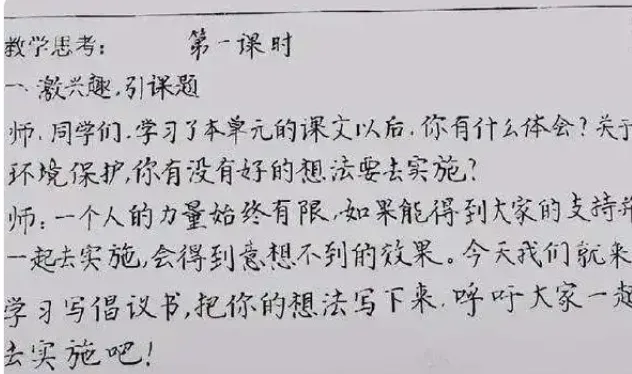 教学思考： 第一课时
一、激兴趣,引课题
师：同学们,学习了本单元的课文以后,你有什么体会？关于
环境保护,你有没有好的想法要去实施？
师：一个人的力量始终有限,如果能得到大家的支持
一起去实施,会得到意想不到的效果。今天我们就来
学习写倡议书,把你的想法写下来,呼吁大家一起
去实施吧！